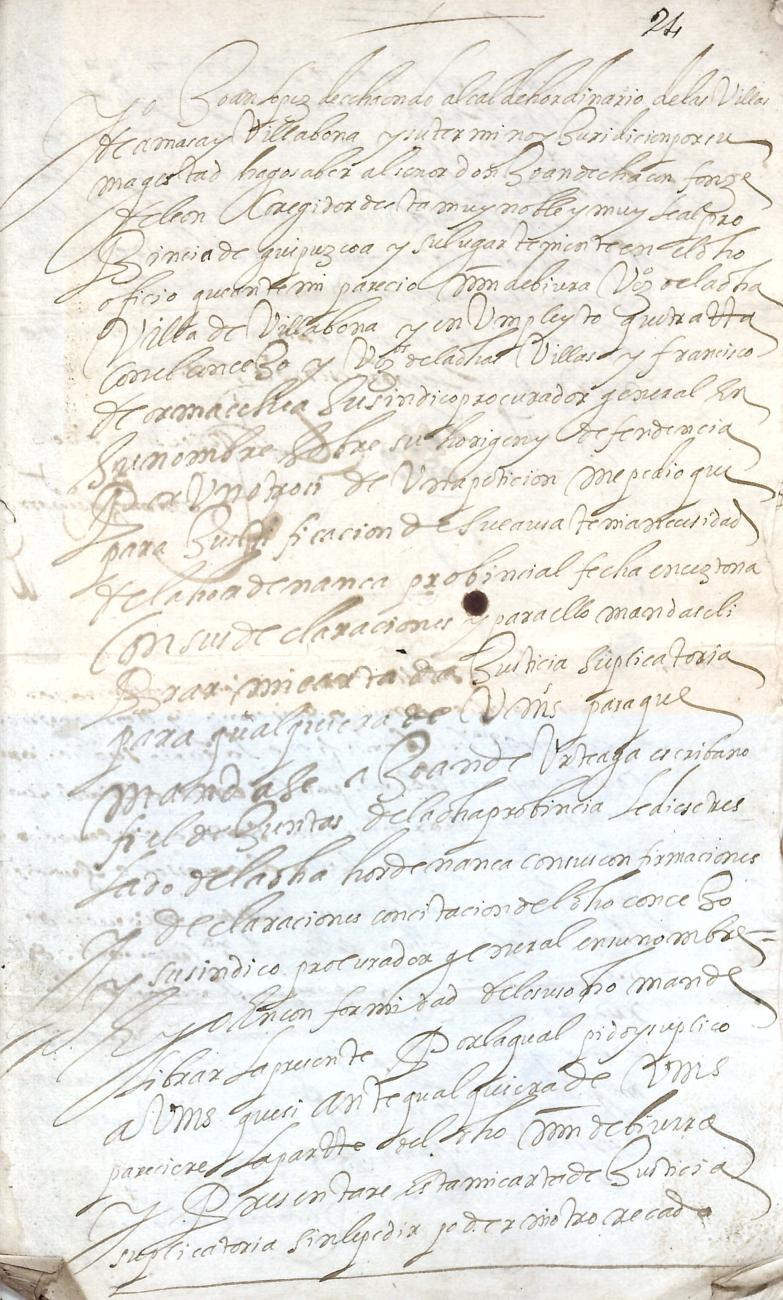 24
Yo Joan Lopez de echaendo alcalde hordinario de las Villas
de amasa y Villabona y su termino y Juridicion por su
magestad hago saber al señor don Joan de chacon ponze
de leon Corregidor desta muy noble y muy leal pro
Bincia de guipuzcoa y su lugar teniente en el dho
oficio que ante mi parecio mīn de biurra Vº de la dha
Villa de Villabona y en Un pleyto que tratta
con el concejo y Vºs de la dhas Villas y francisco
de ormaechea su sindico procurador general En
su nombre sobre su horigen y defendencia
Por Un otrosi de Una peticion me pidio que
para Justificacion de su causa tenia necesidad
de la hordenança probincial fecha en ceztona
Con sus declaraciones y para ello mandase li
Brar mi carta de Justicia suplicatoria
para qualquiera de Vms para que
mandase a Joan de Urteaga escribano
fiel de Juntas de la dha probincia le diese tres
lado de la dha hordenança con sus confirmaciones
y declaraciones con citacion del dho concejo
y su sindico procurador general en su nombre =
E yo En conformidad de lo suso dho mande
librar la presente Por la qual pido y suplico
a Vms que si ante qualquiera de Vms
pareciere la partte del dho mīn de biurra
y Presentare esta mi carta de Justicia
suplicatoria sin le pedir poder ni otro recado